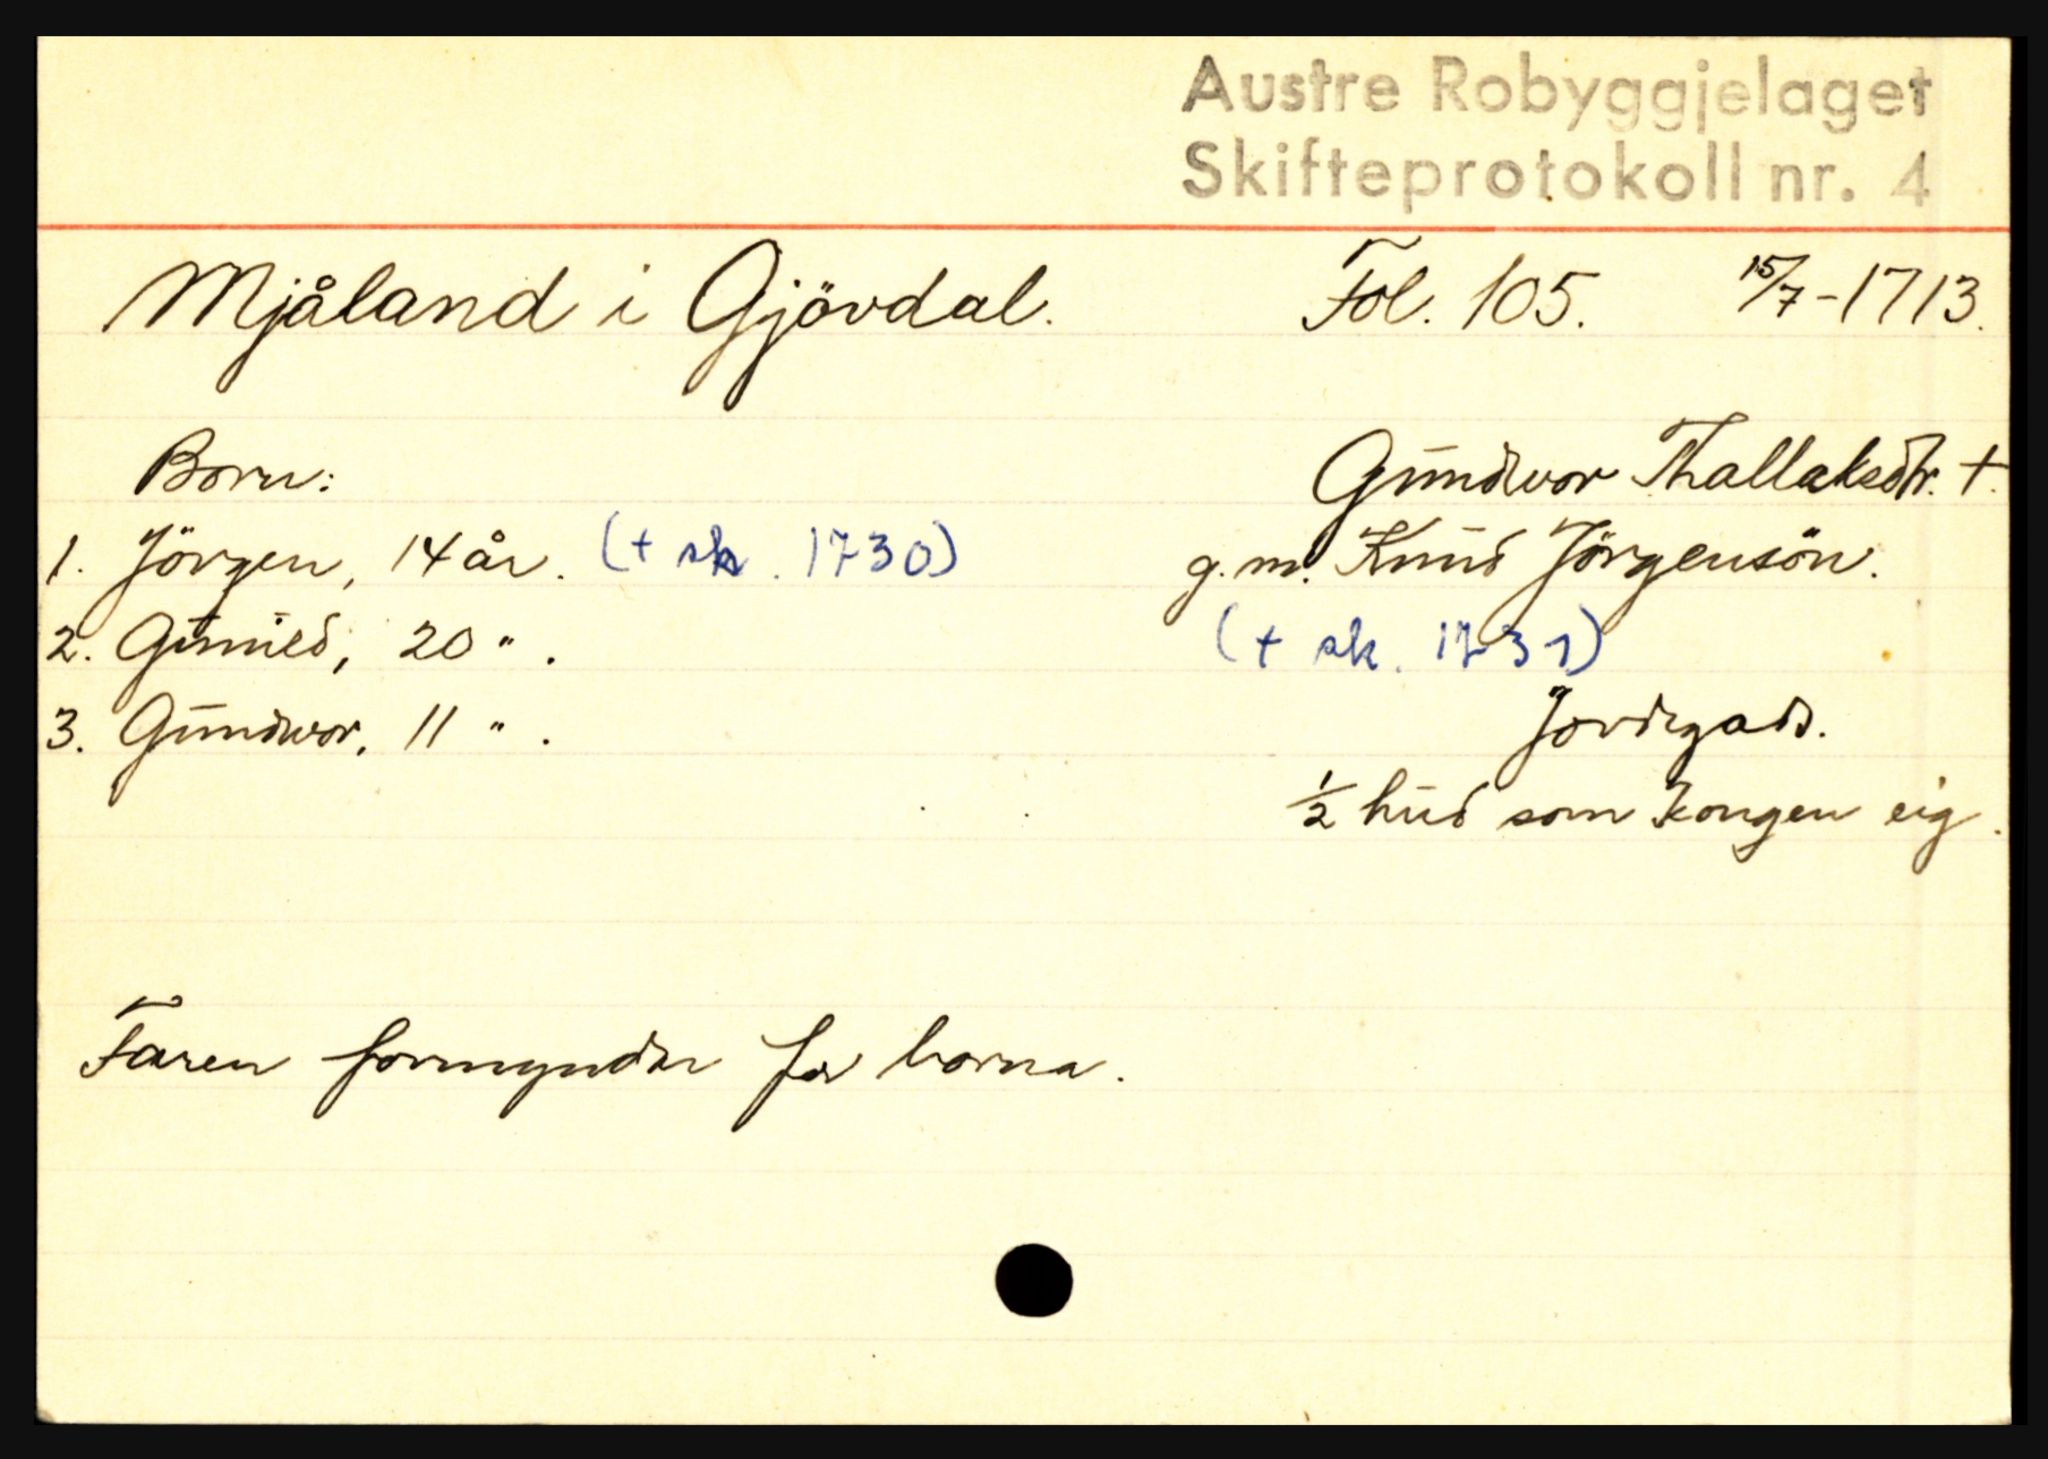 Austre Robyggjelaget
Skifteprotokoll nr. 4
Mjåland i Gjövdal. Fol. 105. 15/7-1713.
Born: Gundwor Thallaksdtr. +.
1. Jörgen, 14 år. (+ sk. 1730) g.m. Knud Jörgensön.
2. Gunild, 20 " . (+ sk. 1731)
3. Gundwor, 11 " . Jordegods.
1/2 hud som kongen eig.
Faren formyndar for borna.